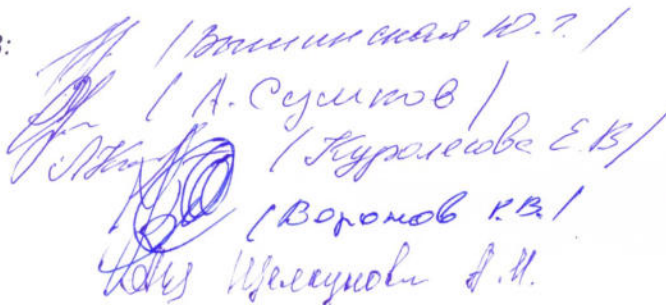 в:
/ Вышинская Ю.Г. /
/ А. Сумков /
/ Куролесова Е.В /
/ Воронов Р.В. /
Щелкунова А.М.